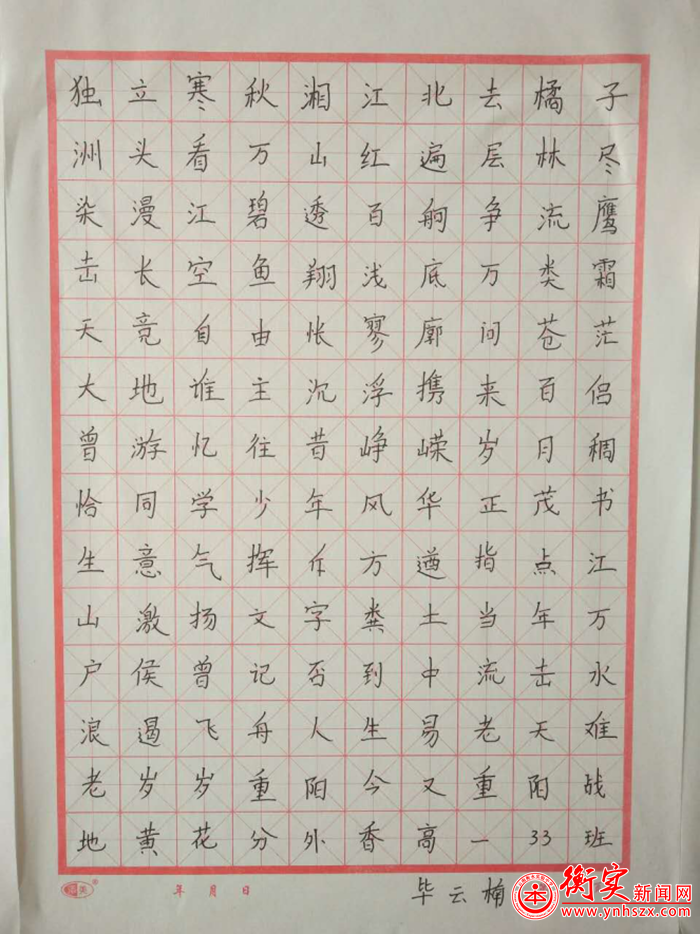 独立寒秋湘江北去橘子
洲头看万山红遍层林尽
染漫江碧透百舸争流鹰
击长空鱼翔浅底万类霜
天竞自由怅寥廓问苍茫
大地谁主沉浮携来百侣
曾游忆往昔峥嵘岁月稠
恰同学少年风华正茂书
生意气挥斥方遒指点江
山激扬文字粪土当年万
户侯曾记否到中流击水
浪遏飞舟人生易老天难
老岁岁重阳今又重阳战
地黄花分外香高一33班
年 月 日
毕云楠
衡实新闻网
www.ynhszx.com